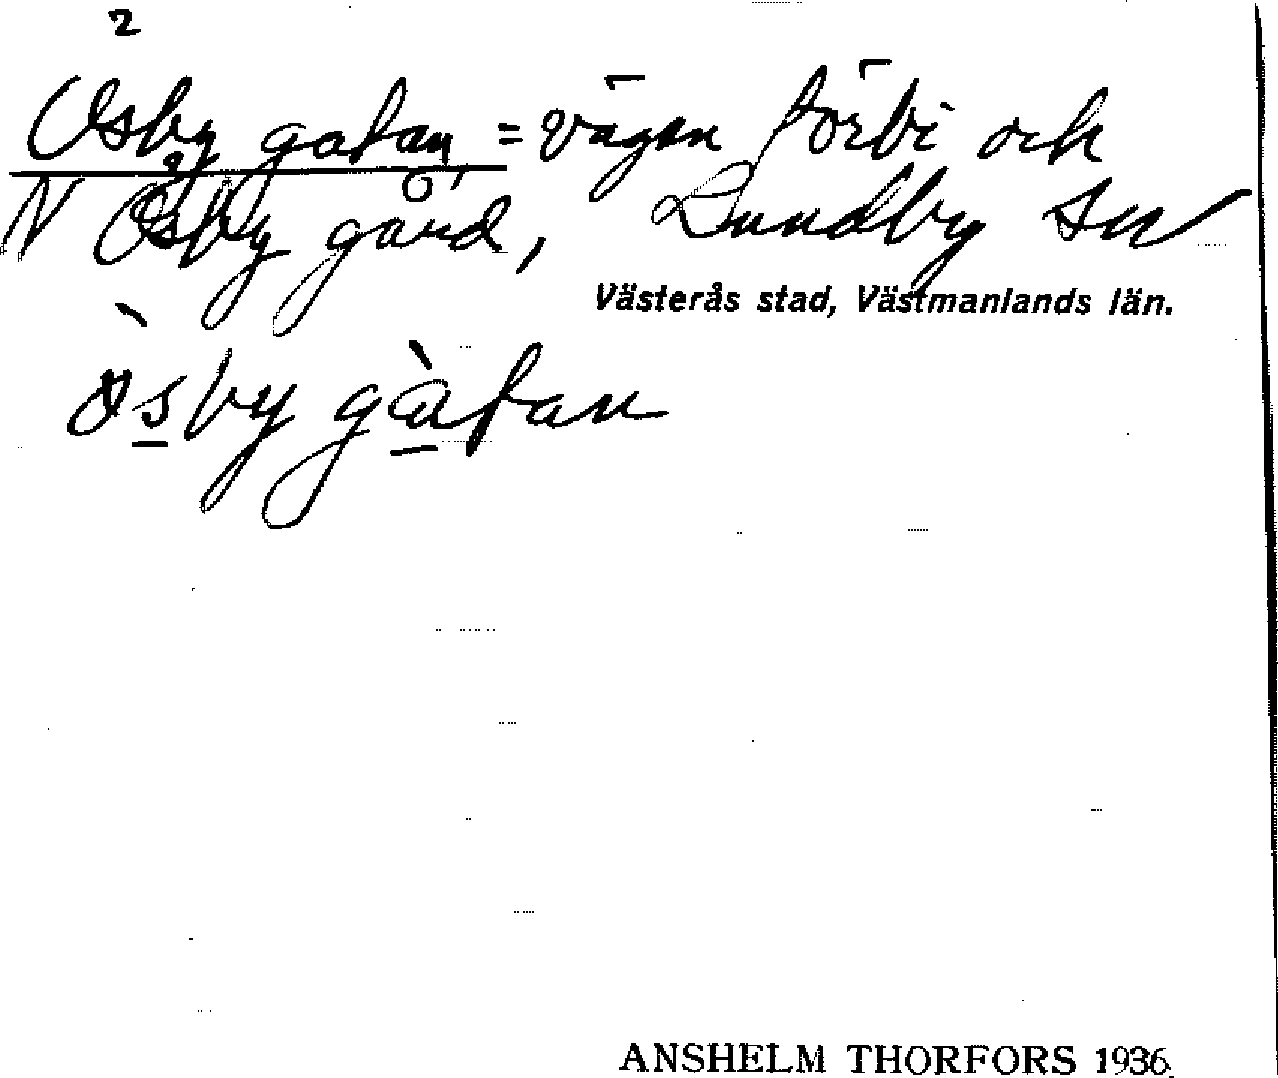 2
Ösby gatan, = vägen förbi och
N Ösby gård, Lundby sn
Västerås stad, Västmanlands län.
ösby gàtan
ANSHELM THORFORS 1936.